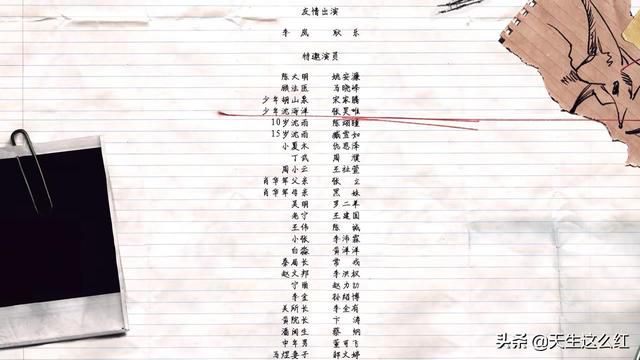 友情出演
李岚 耿乐
特邀演员
陈大明 姚安濂
顾法医 马晓峰
少年胡山泉 宋家腾
少年沈海洋 张昊唯
10岁沈雨 陈翊曈
15岁沈雨 臧雪如
小夏木 仇思泽
丁武 周濮
周小云 王社萱
肖华军父亲 张立
肖华军母亲 黑妹
吴明 罗二羊
老宁 王建国
王伟 陈诚
小张 李沛霖
白淼 黄洋洋
秦局长 常戎
赵文邦 李洪权
宁顺 赵力功
李宝 孙绍博
关所长 李金有
黄院长 卞涛
潘闻生 蔡纲
中年男 董可飞
马煜妻子 郝文婷
头条 @天生这么红